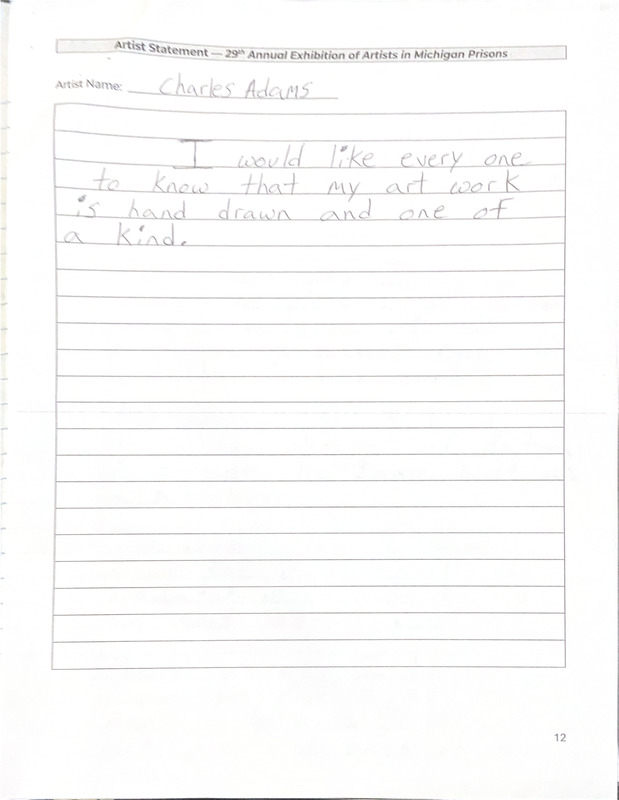 Artist Statement — 29th Annual Exhibition of Artists in Michigan Prisons
Artist Name: Charles Adams
I would like every one
to know that my art work
is hand drawn and one of
a kind.
12